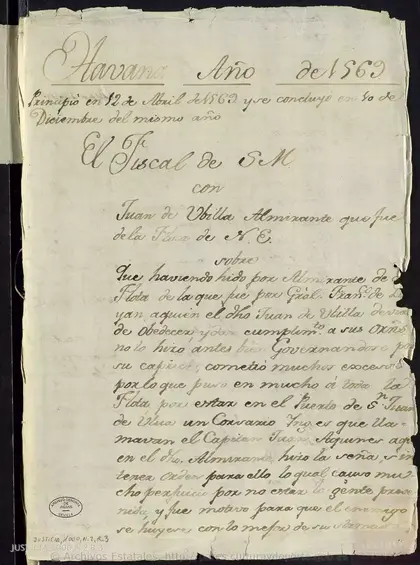 Havana Año de 1569
Principió en 12 de Abril de 1569 y se concluyó en 10 de
Diciembre del mismo año
El Fiscal de S M
con
Juan de Vbilla Almirante que fue
de la Flota de N. E.
sobre
Que haviendo hido por Almirante de
Flota de la que fue por Gräl Franco de
yan, aquien el dho Juan de Vbilla
de obedecer y dar cumplimto a sus
no lo hizó, antes bien Governandose p
su capricho, cometió muchos excesos
por lo que puso en mucho a toda la
Flota por estar en el Puerto de Sn Juan
de Ulua un Corsario Ingles que lla-
mavan el Capitan Juan Aquines
en el dho Almirante, hizo la seña sin
tener orden para ello lo qual causo mu
cho perjuicio por no estar la gente, preve
nida, y fue motivo para que el enemigo
se huyese con lo mejor de su
JUSTICIA, 1000, N.2, R.3
© Archivos Estatales,